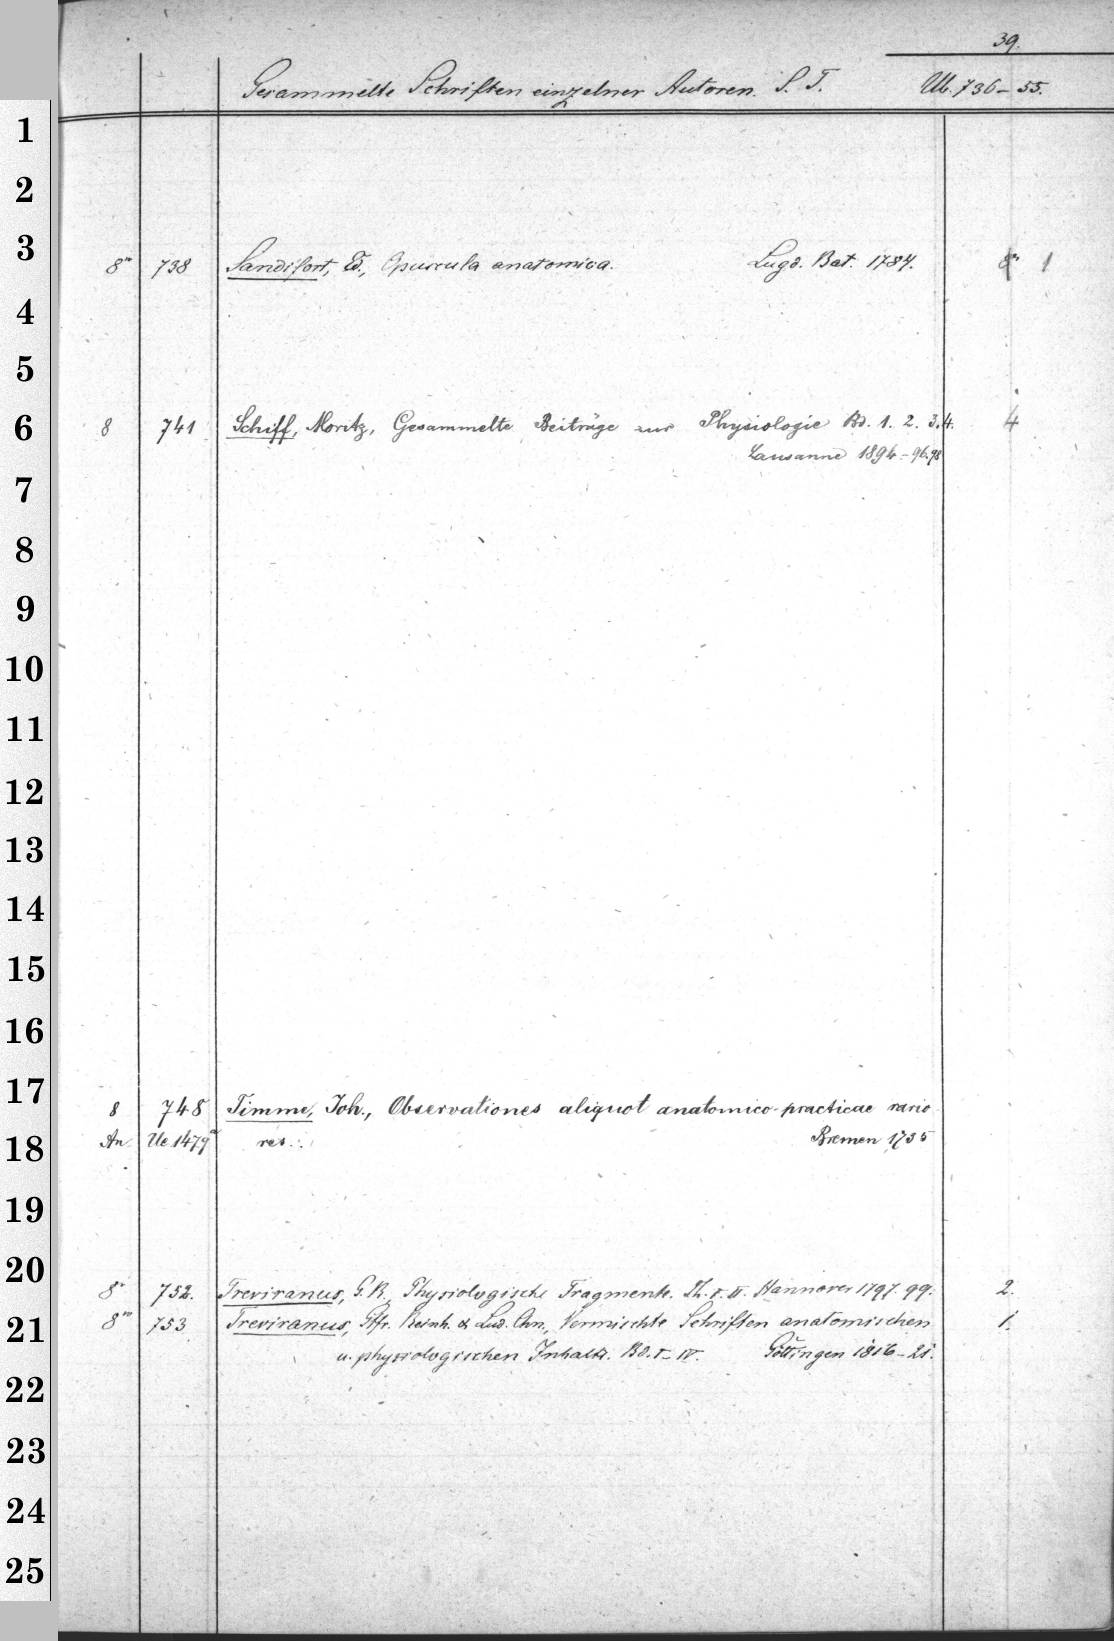 39.
Gesammelte Schriften einzelner Autoren. S. T. Ub. 736-55.
1
2
3
8° 738 Sandifort, Ed., Opuscula anatomica. Lugd. Bat. 1784. 1
4
5
6
8 741 Schiff, Moritz, Gesammelte Beiträge zur Physiologie Bd. 1. 2. 3. 4. 4
Lausanne 1894-96.98
7
8
9
10
11
12
13
14
15
16
17
8 748 Timme, Joh., Observationes aliquot anatomico-practicae rario
An. Ue 1479 res. Bremen 1735
18
19
20
8° 752. Treviranus, G. R., Physiologische Fragmente. Th. I. II. Hannover 1797. 99. 2.
21
8° 753 Treviranus, Gfr. Reinh. & Lud. Chn., Vermischte Schriften anatomischen 1.
u. physiologischen Inhalts. Bd. I-IV. Göttingen 1816-21.
22
23
24
25